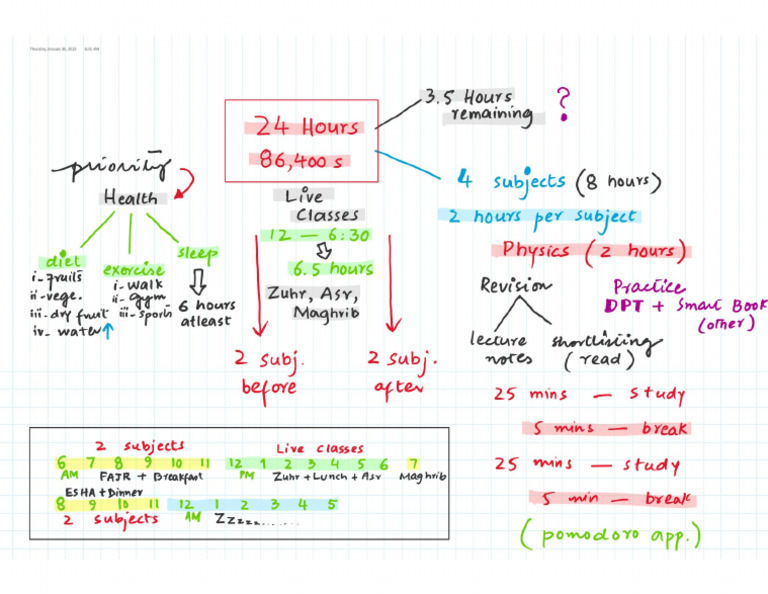 Thursday, January 30, 2025 8:01 AM
24 Hours
86,400 s
3.5 Hours
remaining ?
4 subjects (8 hours)
2 hours per subject
priority
Health
diet
i- fruits
ii- vege.
iii- dry fruit
iv- water ↑
exercise
i- walk
ii- gym
iii- sports
sleep
6 hours
atleast
Live
Classes
12 — 6:30
6.5 hours
Zuhr, Asr,
Maghrib
2 subj.
before
2 subj.
after
Physics (2 hours)
Revision
lecture
notes
shortlisting
(read)
Practice
DPT + Smart Book
(other)
25 mins — study
5 mins — break
25 mins — study
5 min — break
(pomodoro app.)
2 subjects Live classes
6 7 8 9 10 11 12 1 2 3 4 5 6 7
AM FAJR + Breakfast PM Zuhr + Lunch + Asr Maghrib
ESHA + Dinner
8 9 10 11 12 1 2 3 4 5
2 subjects AM Zzzzz........